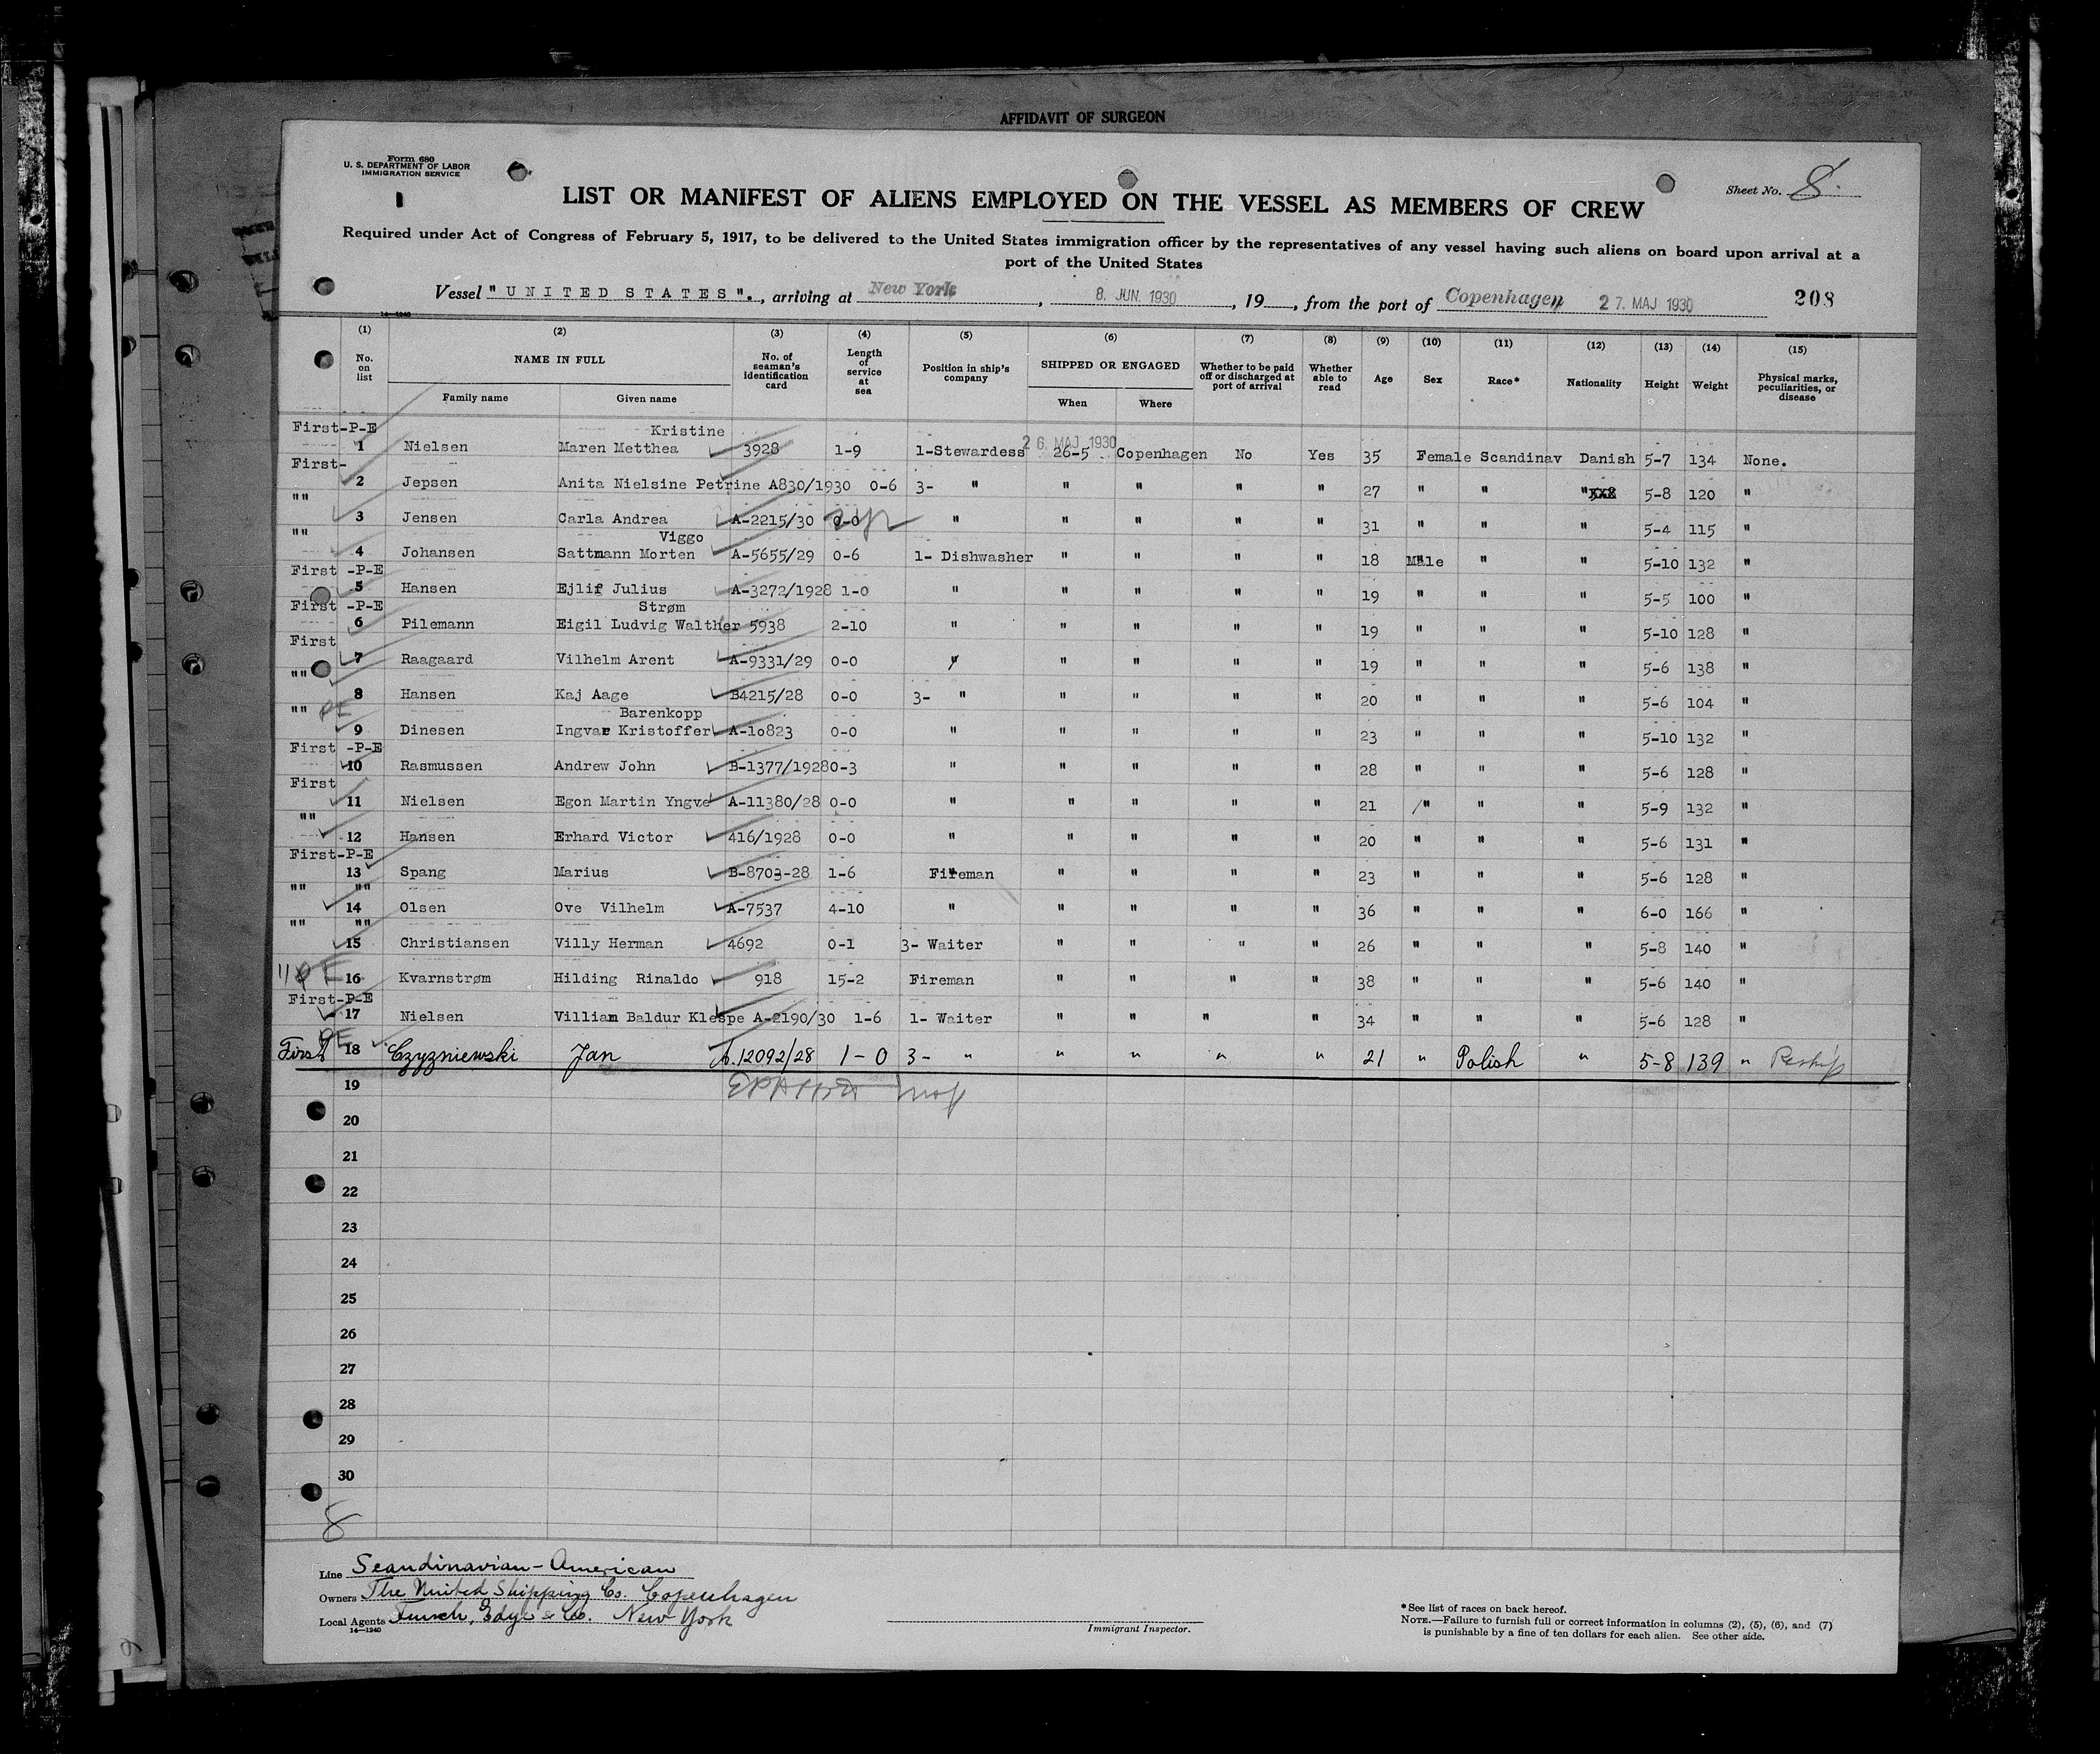 AFFIDAVIT OF SURGEON
Form 680
U. S. DEPARTMENT OF LABOR
IMMIGRATION SERVICE
Sheet No. 8.
LIST OR MANIFEST OF ALIENS EMPLOYED ON THE VESSEL AS MEMBERS OF CREW
Required under Act of Congress of February 5, 1917, to be delivered to the United States immigration officer by the representatives of any vessel having such aliens on board upon arrival at a
port of the United States
Vessel "UNITED STATES"., arriving at New York, 8. JUN. 1930, 19, from the port of Copenhagen 27. MAJ 1930 208
14—1240
(1) (2) (3) (4) (5) (6) (7) (8) (9) (10) (11) (12) (13) (14) (15)
No. on list NAME IN FULL No. of seaman's identification card Length of service at sea Position in ship's company SHIPPED OR ENGAGED Whether to be paid off or discharged at port of arrival Whether able to read Age Sex Race* Nationality Height Weight Physical marks, peculiarities, or disease
Family name Given name When Where
First-P-E Kristine 26. MAJ 1930
1 Nielsen Maren Metthea 3928 1-9 1-Stewardess 26-5 Copenhagen No Yes 35 Female Scandinav Danish 5-7 134 None.
First-
2 Jepsen Anita Nielsine Petrine A830/1930 0-6 3- " " " " " 27 " " " 5-8 120 "
""
3 Jensen Carla Andrea A-2215/30 0-0 " " " " " 31 " " " 5-4 115 "
"" Viggo
4 Johansen Sattmann Morten A-5655/29 0-6 1- Dishwasher " " " " 18 Male " " 5-10 132 "
First -P-E
5 Hansen Ejlif Julius A-3272/1928 1-0 " " " " " 19 " " " 5-5 100 "
First -P-E Strøm
6 Pilemann Eigil Ludvig Walther 5938 2-10 " " " " " 19 " " " 5-10 128 "
First
7 Raagaard Vilhelm Arent A-9331/29 0-0 " " " " " 19 " " " 5-6 138 "
""
8 Hansen Kaj Aage B4215/28 0-0 3- " " " " " 20 " " " 5-6 104 "
"" PE Barenkopp
9 Dinesen Ingvar Kristoffer A-10823 0-0 " " " " " 23 " " " 5-10 132 "
First -P-E
10 Rasmussen Andrew John B-1377/1928 0-3 " " " " " 28 " " " 5-6 128 "
First
11 Nielsen Egon Martin Yngve A-11380/28 0-0 " " " " " 21 " " " 5-9 132 "
""
12 Hansen Erhard Victor 416/1928 0-0 " " " " " 20 " " " 5-6 131 "
First-P-E
13 Spang Marius B-8703-28 1-6 Fireman " " " " 23 " " " 5-6 128 "
"" ""
14 Olsen Ove Vilhelm A-7537 4-10 " " " " " 36 " " " 6-0 166 "
"" ""
15 Christiansen Villy Herman 4692 0-1 3- Waiter " " " " 26 " " " 5-8 140 "
" PE 16 Kvarnstrøm Hilding Rinaldo 918 15-2 Fireman " " " " 38 " " " 5-6 140 "
First-P-E
17 Nielsen Villiam Baldur Klespe A-2190/30 1-6 1- Waiter " " " " 34 " " " 5-6 128 "
First PE 18 Czyzniewski Jan A.12092/28 1-0 3- " " " " " 21 " Polish " 5-8 139 "
19
20
21
22
23
24
25
26
27
28
29
30
8
Line Scandinavian-American
Owners The United Shipping Co. Copenhagen
Local Agents Funch, Edye & Co. New York
14—1240
Immigrant Inspector.
*See list of races on back hereof.
NOTE.—Failure to furnish full or correct information in columns (2), (5), (6), and (7)
is punishable by a fine of ten dollars for each alien. See other side.